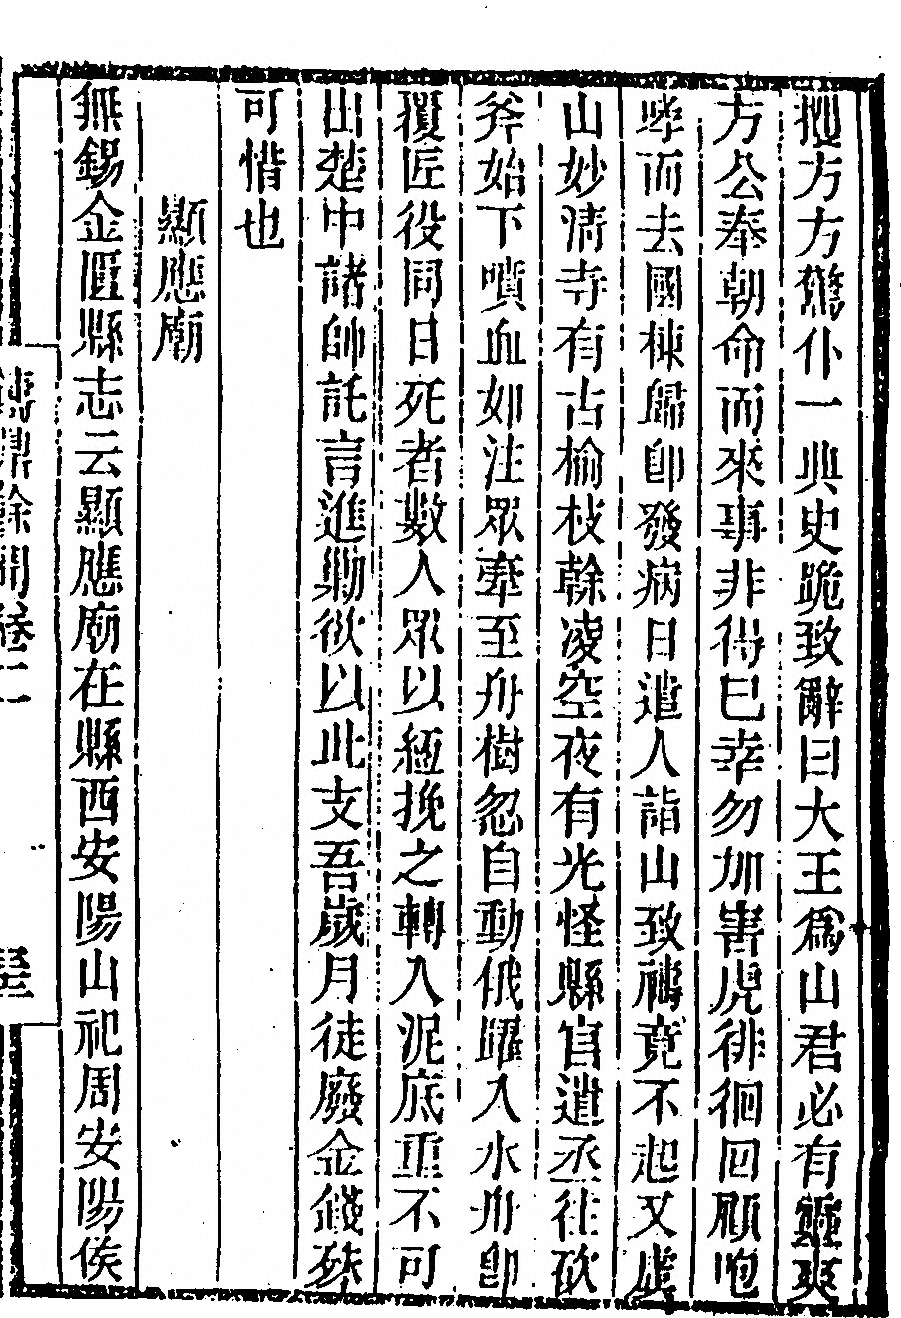 攫方方驚仆一典史跪致辭曰大王爲山君必有靈爽
方公奉朝命而來事非得已幸勿加害虎徘徊回顧咆
哮而去國棟歸卽發病日遣人詣山致禱竟不起又虞
山妙清寺有古楡枝幹凌空夜有光怪縣官遣丞往砍
斧始下噴血如注眾牽至舟樹忽自動俄躍入水舟卽
覆匠役同日死者數人眾以絙挽之轉入泥底重不可
出楚中諸帥託言進勦欲以此支吾歲月徒廢金錢殊
可惜也
顯應廟
無錫金匱縣志云顯應廟在縣西安陽山祀周安陽侯
餘聞卷二